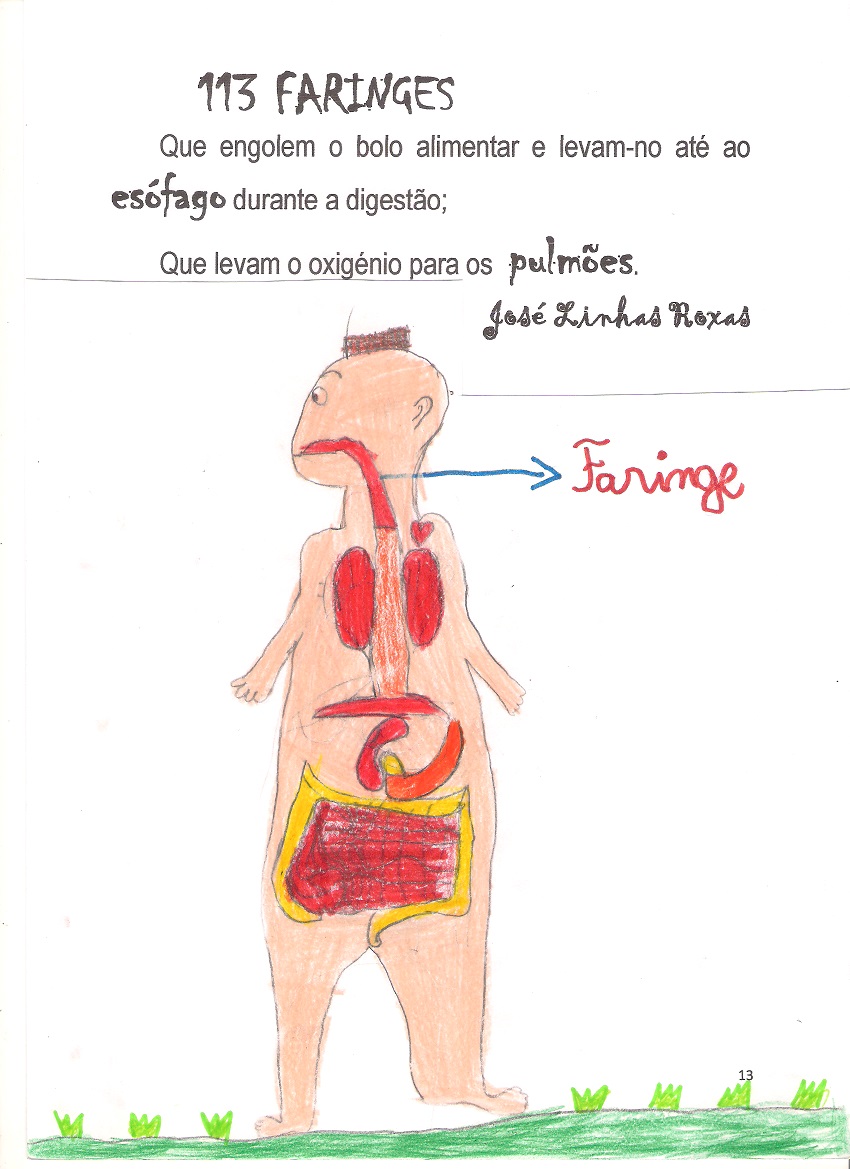 113 FARINGES
Que engolem o bolo alimentar e levam-no até ao
esófago durante a digestão;
Que levam o oxigénio para os pulmões.
José Linhas Roxas
Faringe
13